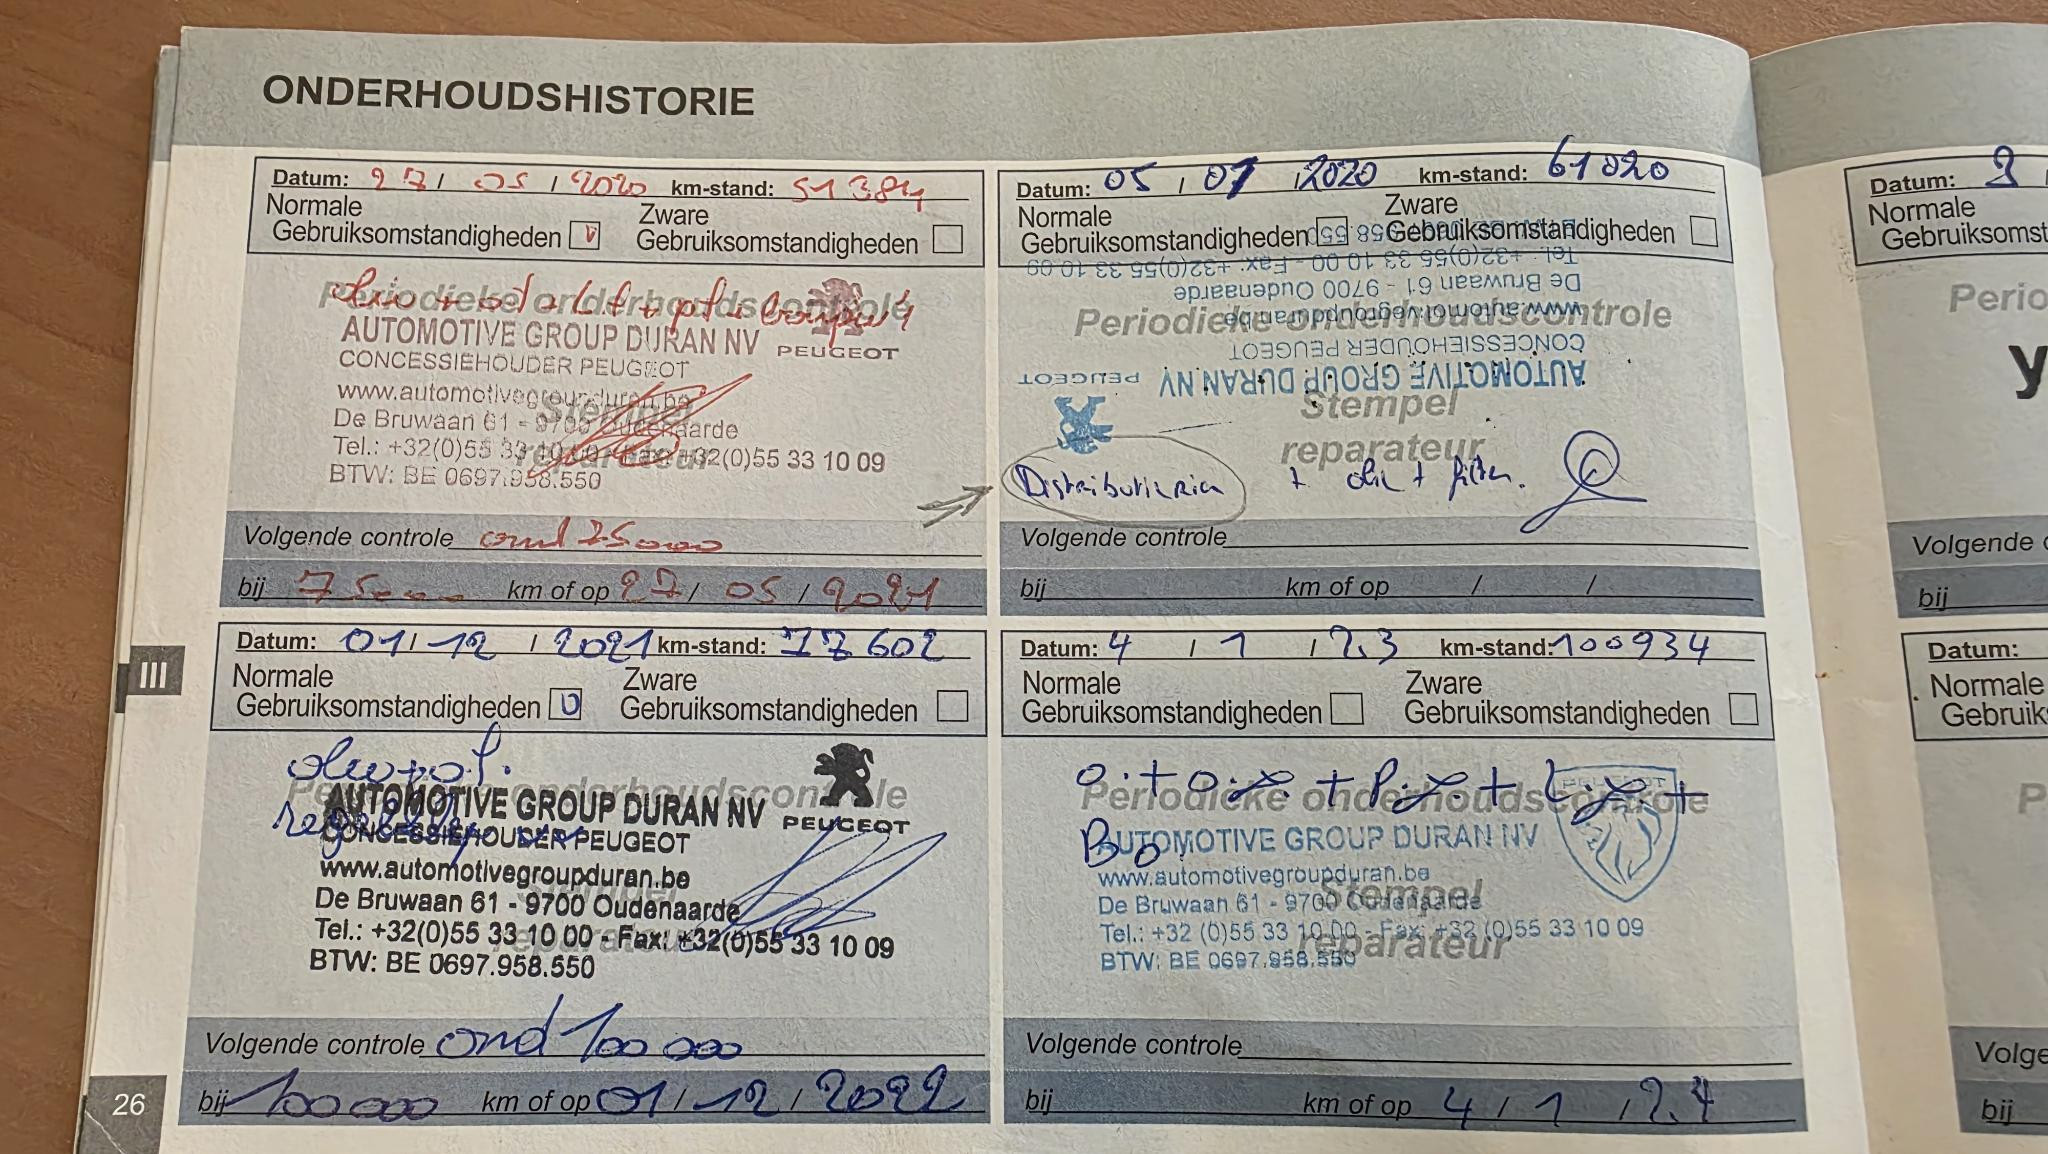 ONDERHOUDSHISTORIE
Datum: 27 / 05 / 2020 km-stand: 51384
Normale Gebruiksomstandigheden V Zware Gebruiksomstandigheden
Periodieke onderhoudscontrole
AUTOMOTIVE GROUP DURAN NV PEUGEOT
CONCESSIEHOUDER PEUGEOT
www.automotivegroupduran.be
Stempel
De Bruwaan 61 - 9700 Oudenaarde
Tel.: +32(0)55 33 10 00 - Fax: +32(0)55 33 10 09
reparateur
BTW: BE 0697.958.550
Volgende controle ond 75000
bij 75000 km of op 27 / 05 / 2021
Datum: 05 / 07 / 2020 km-stand: 61020
Normale Gebruiksomstandigheden Zware Gebruiksomstandigheden
BTW: BE 0697.958.550
Tel.: +32(0)55 33 10 00 - Fax: +32(0)55 33 10 09
De Bruwaan 61 - 9700 Oudenaarde
Periodieke onderhoudscontrole
www.automotivegroupduran.be
CONCESSIEHOUDER PEUGEOT
AUTOMOTIVE GROUP DURAN NV PEUGEOT
Stempel
reparateur
Distributieriem + olie + filter.
Volgende controle
bij km of op / /
Datum: 01 / 12 / 2021 km-stand: 77602
Normale Gebruiksomstandigheden V Zware Gebruiksomstandigheden
Periodieke onderhoudscontrole
AUTOMOTIVE GROUP DURAN NV PEUGEOT
CONCESSIEHOUDER PEUGEOT
www.automotivegroupduran.be
Stempel
De Bruwaan 61 - 9700 Oudenaarde
Tel.: +32(0)55 33 10 00 - Fax: +32(0)55 33 10 09
reparateur
BTW: BE 0697.958.550
Volgende controle ond 100 000
bij 100 000 km of op 01 / 12 / 2022
Datum: 4 / 1 / 23 km-stand: 100934
Normale Gebruiksomstandigheden Zware Gebruiksomstandigheden
PEUGEOT
Periodieke onderhoudscontrole
AUTOMOTIVE GROUP DURAN NV
www.automotivegroupduran.be
Stempel
De Bruwaan 61 - 9700 Oudenaarde
Tel.: +32 (0)55 33 10 00 - Fax: +32 (0)55 33 10 09
reparateur
BTW: BE 0697.958.550
Volgende controle
bij km of op 4 / 1 / 24
III
26
Datum:
Normale
Gebruiksomst
Perio
Volgende c
bij
Datum:
Normale
Gebruik
P
Volge
bij